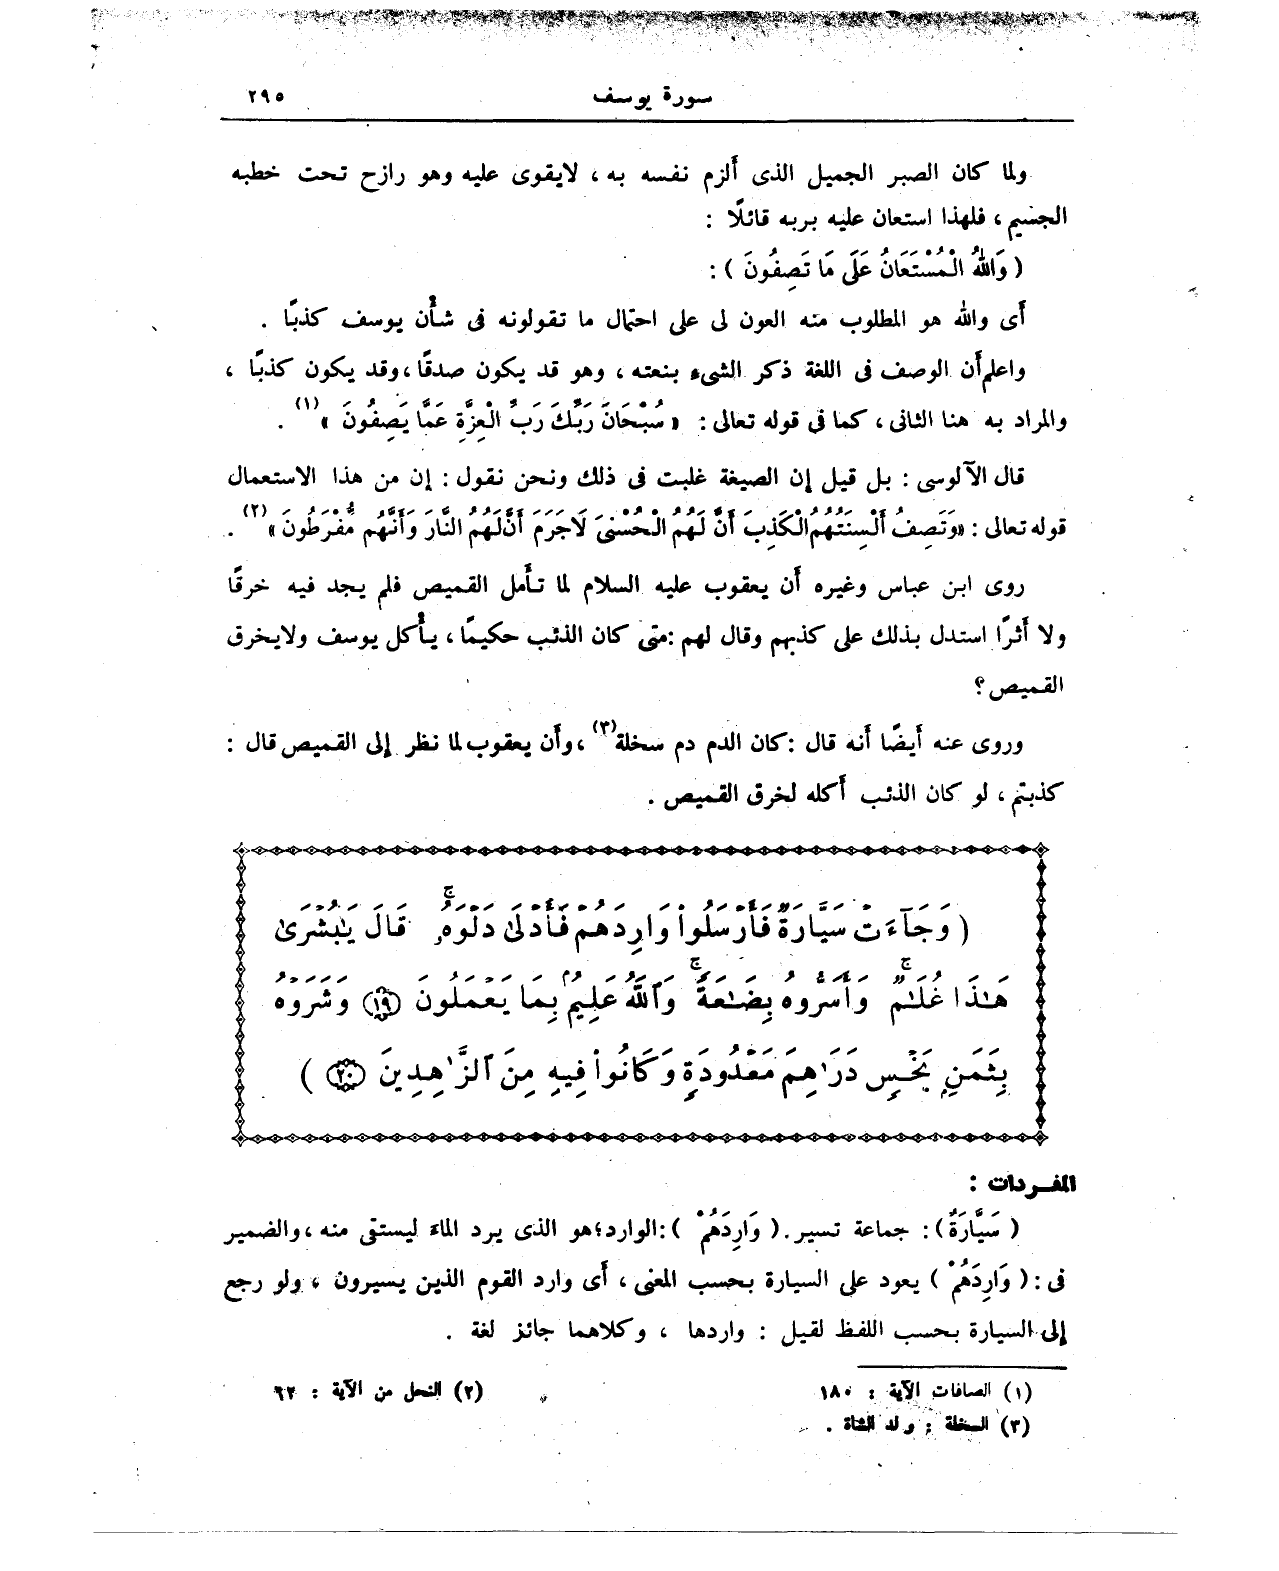 سورة يوسف ٢٩٥
ولما كان الصبر الجميل الذى ألزم نفسه به ، لايقوى عليه وهو رازح تحت خطبه
الجسيم ، فلهذا استعان عليه بربه قائلًا :
( وَاللهُ الْمُسْتَعَانُ عَلَى مَا تَصِفُونَ ) :
أى والله هو المطلوب منه العون لى على احتمال ما تقولونه فى شأن يوسف كذبًا .
واعلم أن الوصف فى اللغة ذكر الشىء بنعته ، وهو قد يكون صدقًا ، وقد يكون كذبًا ،
والمراد به هنا الثانى ، كما فى قوله تعالى : « سُبْحَانَ رَبِّكَ رَبِّ الْعِزَّةِ عَمَّا يَصِفُونَ » (١) .
قال الآلوسى : بل قيل إن الصيغة غلبت فى ذلك ونحن نقول : إن من هذا الاستعمال
قوله تعالى : «وَتَصِفُ أَلْسِنَتُهُمُ الْكَذِبَ أَنَّ لَهُمُ الْحُسْنَىَ لَاجَرَمَ أَنَّ لَهُمُ النَّارَ وَأَنَّهُم مُّفْرَطُونَ» (٢) .
روى ابن عباس وغيره أن يعقوب عليه السلام لما تأمل القميص فلم يجد فيه خرقًا
ولا أثرًا استدل بذلك على كذبهم وقال لهم : متى كان الذئب حكيمًا ، يأكل يوسف ولايخرق
القميص ؟
وروى عنه أيضًا أنه قال : كان الدم دم سخلة (٣) ، وأن يعقوب لما نظر إلى القميص قال :
كذبتم ، لو كان الذئب أكله لخرق القميص .
( وَجَآءَتْ سَيَّارَةٌ فَأَرْسَلُوا۟ وَارِدَهُمْ فَأَدْلَىٰ دَلْوَهُۥ ۖ قَالَ يَٰبُشْرَىٰ
هَٰذَا غُلَٰمٌ ۚ وَأَسَرُّوهُ بِضَٰعَةً ۚ وَٱللَّهُ عَلِيمٌۢ بِمَا يَعْمَلُونَ ١٩ وَشَرَوْهُ
بِثَمَنٍۭ بَخْسٍ دَرَٰهِمَ مَعْدُودَةٍ وَكَانُوا۟ فِيهِ مِنَ ٱلزَّٰهِدِينَ ٢٠ )
المفردات :
( سَيَّارَةٌ ) : جماعة تسير . ( وَارِدَهُمْ ) : الوارد؛ هو الذى يرد الماء ليستقى منه ، والضمير
فى : ( وَارِدَهُمْ ) يعود على السيارة بحسب المعنى ، أى وارد القوم الذين يسيرون ، ولو رجع
إلى السيارة بحسب اللفظ لقيل : واردها ، وكلاهما جائز لغة .
(١) الصافات الآية : ١٨٠ (٢) النحل من الآية : ٦٢
(٣) السخلة : ولد الشاة .